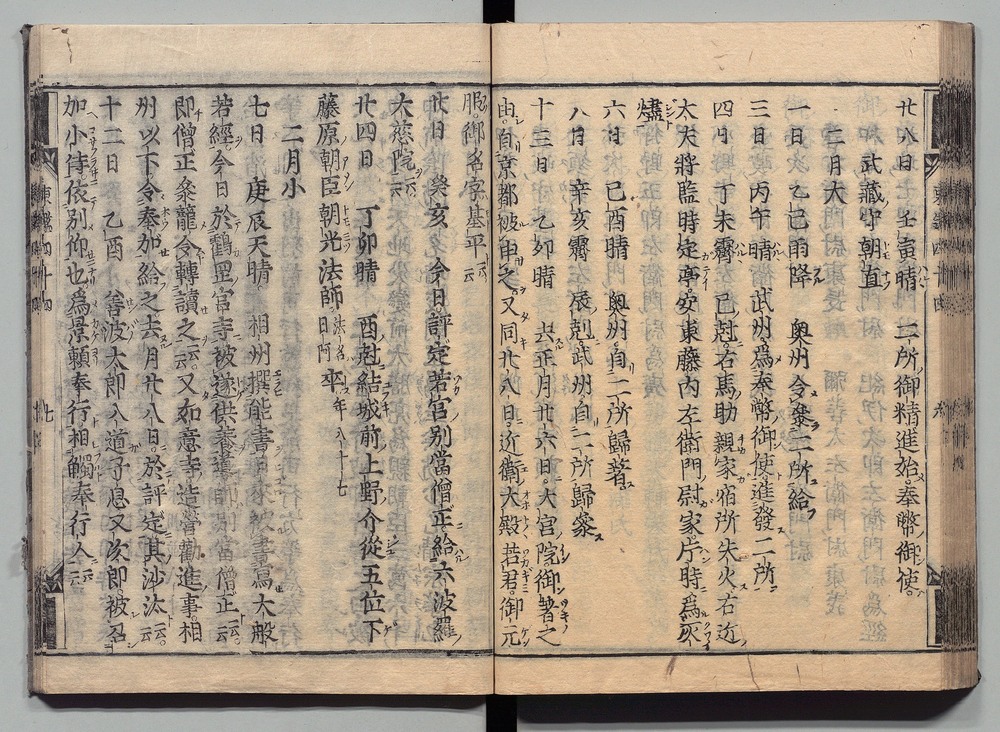 廿八日 壬寅晴 二所御精進始奉幣御使
武藏守朝直
二月大
一日 乙巳雨降 奥州令參二所給
三日 丙午晴 武州為奉幣御使進發二所
四日 丁未霽 已尅右馬助親家宿所失火右近
太夫將監時定亭安東藤内左衛門尉家片時為灰
燼
六日 己酉晴 奥州自二所歸著
八日 辛亥霽 辰尅武州自二所歸參
十三日 乙卯晴 去正月廿六日大宮院御著之
由自京都被申之又同廿八日近衛大殿若君御元
服御名字基平云云
廿日 癸亥 今日評定若宮別當僧正給六波羅
大慈院云云
廿四日 丁卯晴 酉尅結城前上野介從五位下
藤原朝臣朝光法師法名日阿卒年八十七
二月小
七日 庚辰天晴 相州撰能書 被書寫大般
若經今日於鶴罡宮寺被遂供養導師當僧正云云
即僧正參籠令轉讀之云云又如意寺造營勸進事相
州以下令奉加給之去月廿八日於評定其沙汰云云
十二日 乙酉 善波太郎入道子息又次郎被召
加小侍依別仰也為景頼奉行相觸奉行人云云
東鑑四十四
七